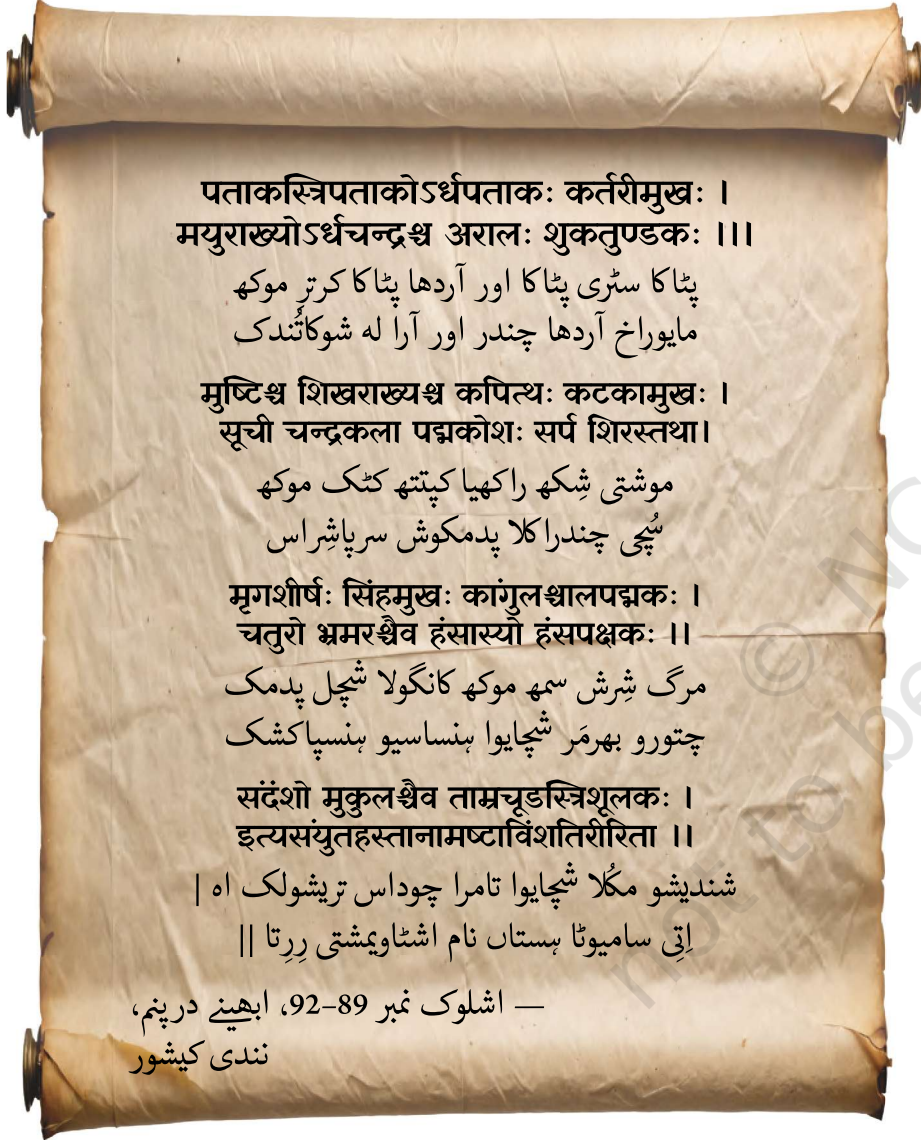 पताकस्त्रिपताकोऽर्धपताकः कर्तरीमुखः ।
मयुराख्योऽर्धचन्द्रश्च अरालः शुकतुण्डकः ।।।
پٹاکا سٹری پٹاکا اور آردھا پٹاکا کرترِ موکھ
مایوراخ آردھا چندر اور آرا لہ شوکاتُندک
मुष्टिश्च शिखराख्यश्च कपित्थः कटकामुखः ।
सूची चन्द्रकला पद्मकोशः सर्प शिरस्तथा।
موشتی شِکھ راکھیا کپتتھ کٹک موکھ
سُچی چندراکلا پدمکوش سرپاشِراس
मृगशीर्षः सिंहमुखः कांगुलश्चालपद्मकः ।
चतुरो भ्रमरश्चैव हंसास्यो हंसपक्षकः ।।
مرگ شِرش سمھ موکھ کانگولا شچل پدمک
چتورو بھرمَر شچایوا ہنساسیو ہنسپاکشک
संदंशो मुकुलश्चैव ताम्रचूडस्त्रिशूलकः ।
इत्यसंयुतहस्तानामष्टाविंशतिरीरिता ।।
شندیشو مکُلا شچایوا تامرا چوداس تریشولک اہ |
اِتِی سامیوٹا ہستاں نام اشٹاویمشتی رِرِتا ||
— اشلوک نمبر 89–92، ابھینے درپنم،
نندی کیشور
© NC
not to be